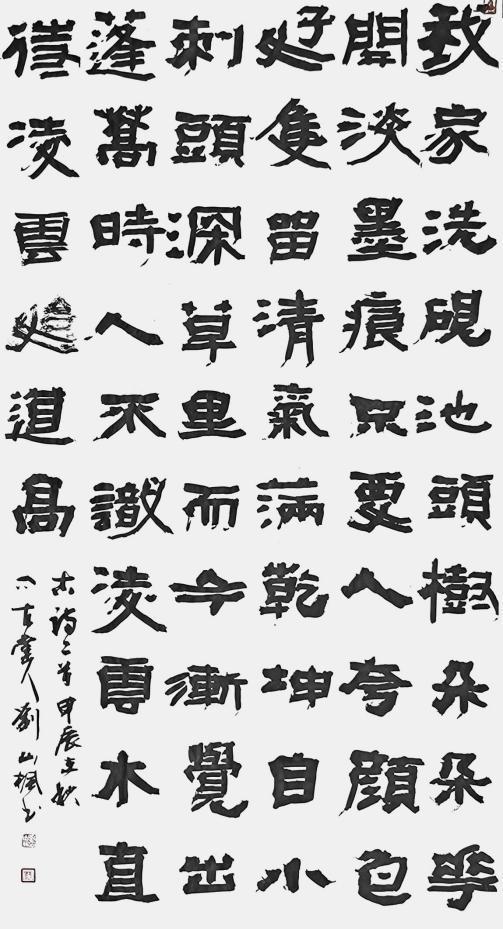 我家洗硯池頭樹朵朵華
開淡墨痕不要人夸顏色
好隻留清氣滿乾坤自小
刺頭深草里而今漸覺出
蓬蒿時人不識凌雲木直
待凌雲始道高
古詩二首甲辰立秋
古堂人劉山楓书